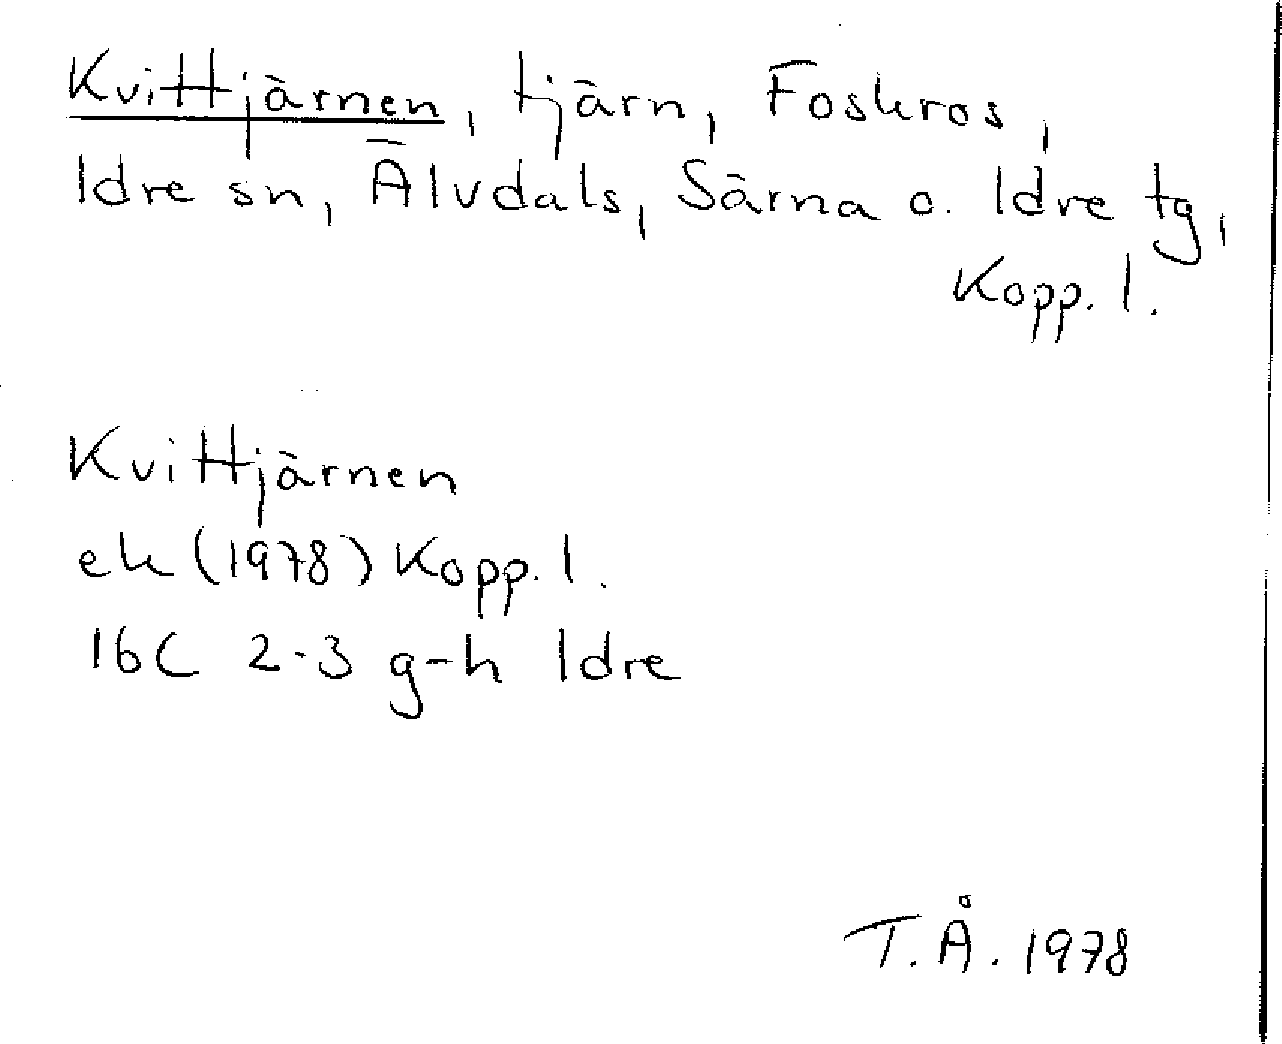 Kvittjärnen, tjärn, Foskros,
Idre sn, Älvdals, Särna o. Idre tg,
Kopp. l.
Kvittjärnen
ek (1978) Kopp. l.
16C 2-3 g-h Idre
T. Å. 1978